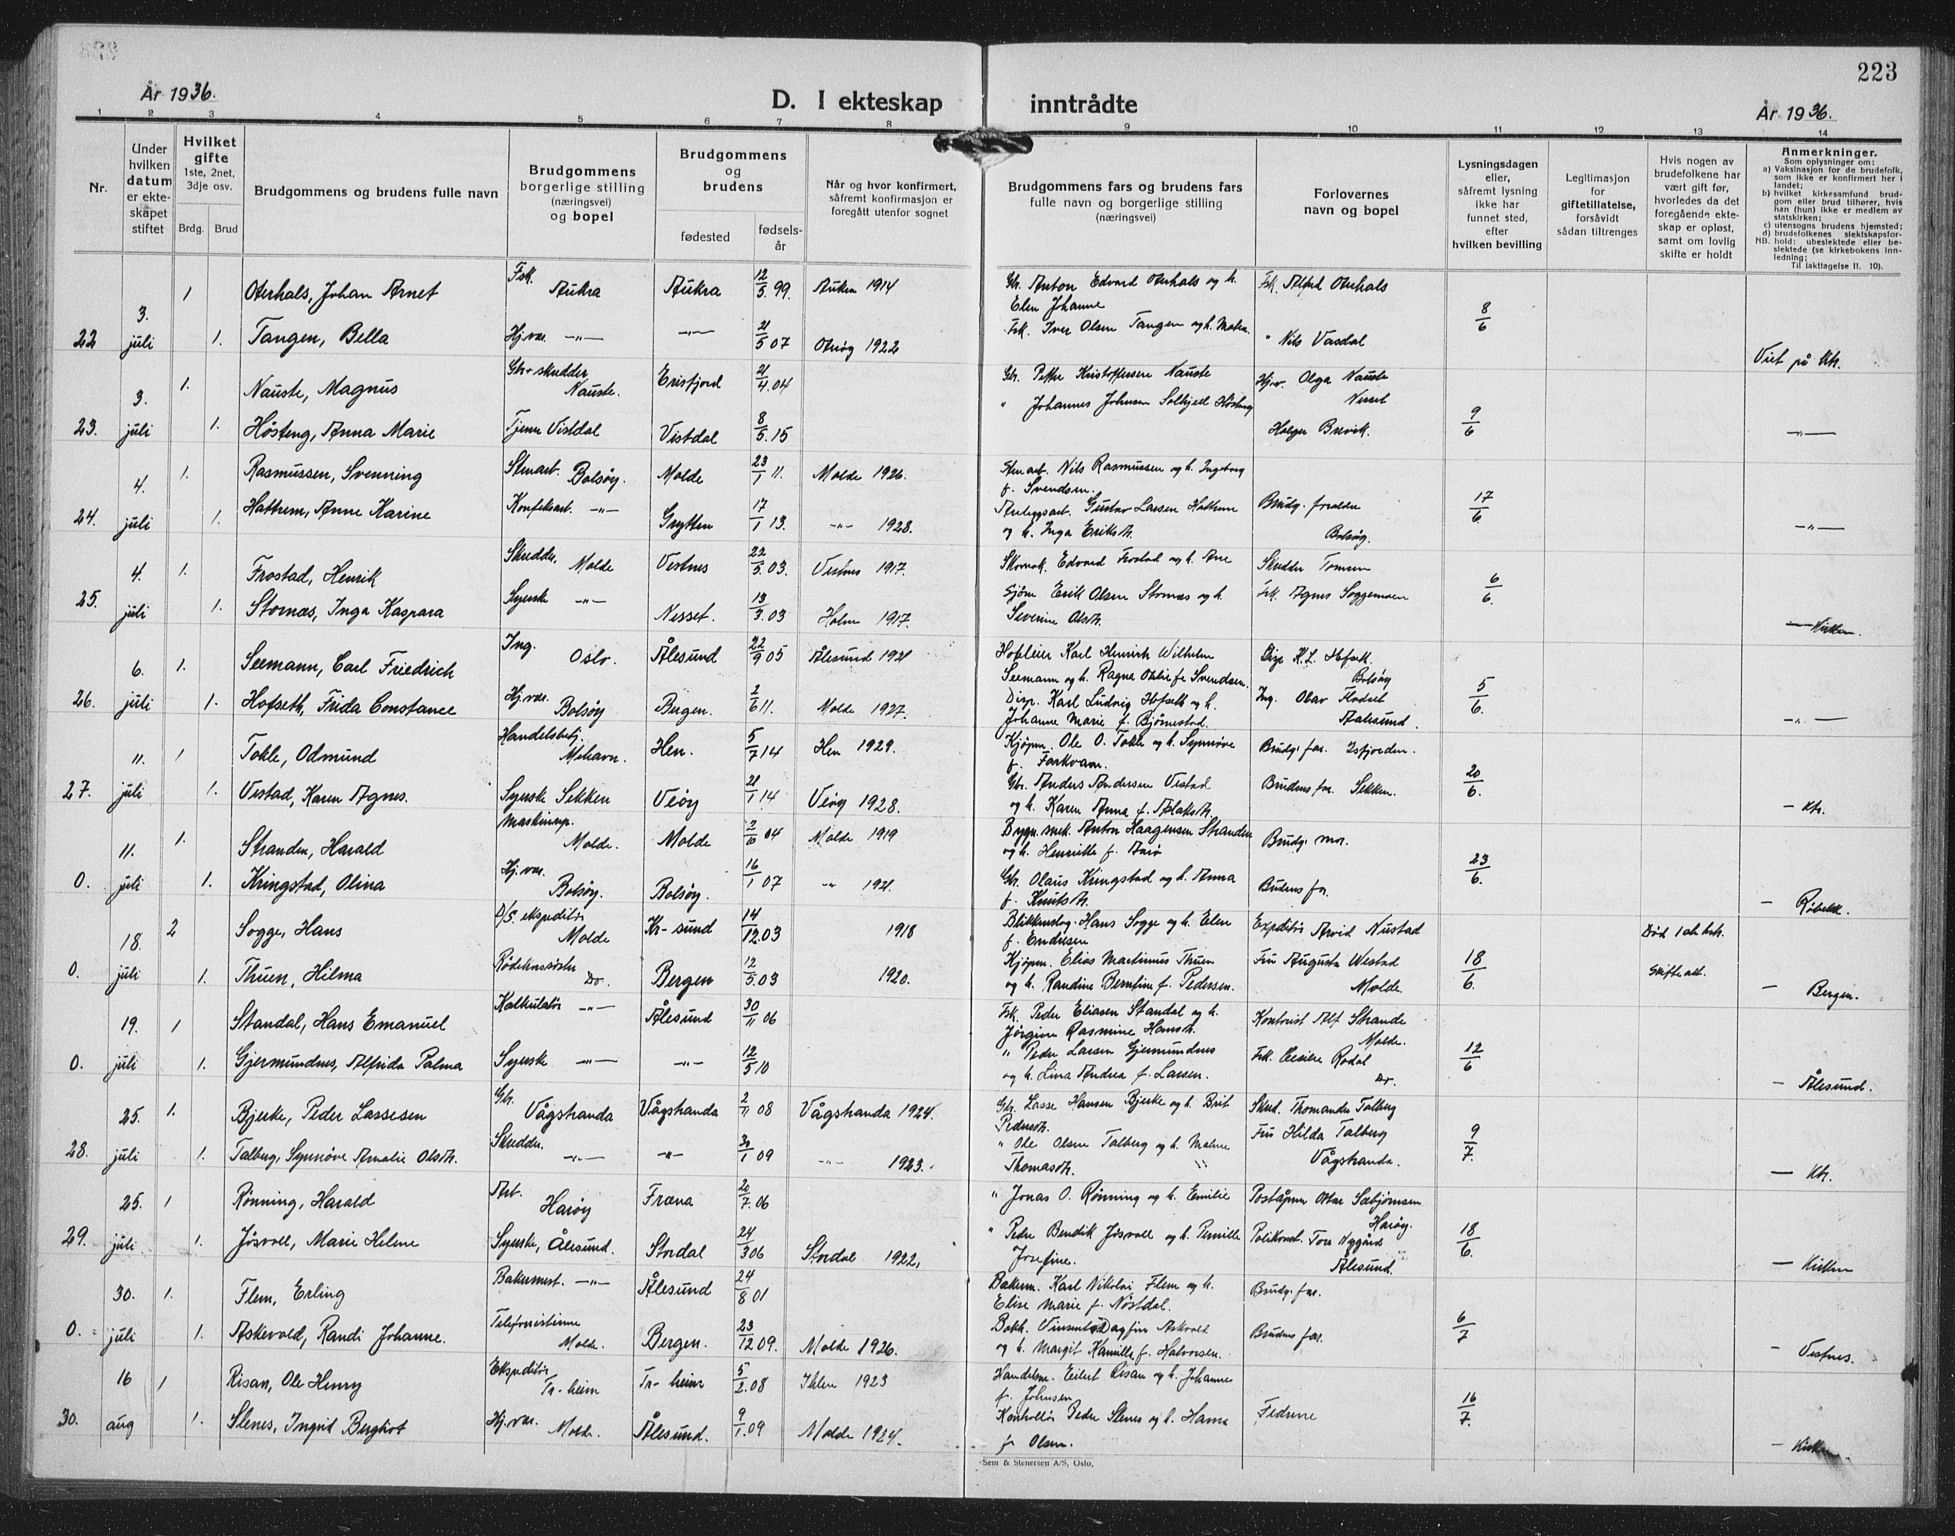 223
År 1936.
D. I ekteskap inntrådte
År 1936.
1 2 3 4 5 6 7 8 9 10 11 12 13 14
Nr.
Under hvilken datum er ekteskapet stiftet
Hvilket gifte
1ste, 2net, 3dje osv.
Brdg. Brud
Brudgommens og brudens fulle navn
Brudgommens borgerlige stilling (næringsvei) og bopel
Brudgommens og brudens
fødested
fødselsår
Når og hvor konfirmert, såfremt konfirmasjon er foregått utenfor sognet
Brudgommens fars og brudens fars fulle navn og borgerlige stilling (næringsvei)
Forlovernes navn og bopel
Lysningsdagen eller, såfremt lysning ikke har funnet sted, efter hvilken bevilling
Legitimasjon for giftetillatelse, forsåvidt sådan tiltrenges
Hvis nogen av brudefolkene har vært gift før, hvorledes da det foregående ekteskap er opløst, samt om lovlig skifte er holdt
Anmerkninger.
Som oplysninger om:
a) Vaksinasjon for de brudefolk, som ikke er konfirmert her i landet;
b) hvilket kirkesamfund brudgom eller brud tilhører, hvis han (hun) ikke er medlem av statskirken;
c) utensogns brudens hjemsted;
d) brudefolkenes slektskapsforhold: ubeslektede eller beslektede (se kirkebokens innledning;
NB. Til iakttagelse ll. 10).
1 Oterhals, Johan Arnet Fsk. Aukra Aukra 12/5 99. Aukra 1914 Gbr. Anton Edvard Oterhals og h. Elen Johanne Fsk. Alfred Oterhals
22 3. juli 1. Tangen, Bella Hj.vær. -"- -"- 21/5 07 Otrøy 1922 Fsk. Iver Olsen Tangen og h. " Nils Vasdal 8/6 Viet på ktr.
3. 1. Nauste, Magnus Gbr + skredder Nauste. Eresfjord 21/4 04 Gbr. Petter Kristoffersen Nauste Hjv. Olga Nauste Nesset
23. juli 1. Høsteng, Anna Marie Tjener Vistdal Vistdal 8/5 15 " Johannes Johnsen Høsteng Holger Brevik. 9/6 -"-
4. 1. Rasmussen, Svenning Stenarb. Bolsøy. Molde 23/1 11. Molde 1926. Stenarb. Nils Rasmussen og h. Ingeborg f. Svendsen.
24. juli 1. Hattrem, Anne Karine Konfeksarb. -"- Grytten 17/1 13. -"- 1928. Anleggsarb. Gustav Larsen Hattrem og h. Inga Eriksdt. Brudg. foreldre Bolsøy. 17/6 -"-
4. 1. Frostad, Henrik Skredder, Molde Vestnes 22/5 03. Vestnes 1917. Skomak. Edvard Frostad og h. Ane Skredder Tomren
25. juli 1. Stornæs, Inga Kaspara Syerske -"- Nesset. 13/3 03 Holm 1917. Sjøm. Erik Olsen Stornæs og h. Severine Olsdt. Frk. Agnes Soggemoen 6/6. Kirken.
6. 1. Seemann, Carl Friedrich Ing. Oslo. Ålesund 22/9 05 Ålesund 1921 Hofeier Karl Henrik Wilhelm Seemann og h. Ragna Othilie f. Svendsen. Disp. K. L. Hofseth Bolsøy
26. juli 1. Hofseth, Frida Constance Hj.vær. Bolsøy Bergen. 2/6 11. Molde 1927. Disp. Karl Ludvig Hofseth og h. Johanne Marie f. Bjørnestad. Ing. Olav Aalesund. 5/6. -"-
11. 1 Tokle, Odmund Handelsbetj. Mehavn. Hen. 5/7 14 Hen 1929. Kjøpm. Ole O. Tokle og h. Synnøve f. Farkvam. Brudg. far. Isfjorden.
27. juli 1. Vestad, Karen Agnes. Syerske Sekken Veøy 21/1 14 Veøy 1928. Gbr. Anders Andersen Vestad og h. Karen Anna f. Aslaksdt. Brudens far. Sekken. 20/6. - ktr.
11. 1. Stranden, Harald Maskinrep. Molde. Molde 2/6 04 Molde 1919 Bygn.snek. Anton Haagensen Stranden og h. Henrikke f. Aarø Brudg. mor.
0. juli 1. Kringstad, Olina Hj.vær. Bolsøy. Bolsøy. 16/1 07 -"- 1921. Gbr. Olaus Kringstad og h. Anna f. Knutsdt. Brudens far. 23/6. - Røbekk.
18. 2 Sogge, Hans D/S. ekspeditør Molde Kr-sund 14/12 03 1918 Blikkenslag. Hans Sogge og h. Elen f. Endresen Expeditør Arvid Nustad Død
0. juli 1. Thuen, Hilma Rødekorssøster Do. Bergen 12/5 03 1920. Kjøpm. Elias Martinius Thuen og h. Randine Berntine f. Pedersen. Fru Augusta Westad Molde. 18/6. Skifte - Bergen.
19. 1 Standal, Hans Emanuel Kalkulatør -"- Ålesund 30/11 06 Fsk. Peder Eliasen Standal og h. Jørgine Rasmine Hansdt. Kontorist Alf Strande Molde.
0. juli 1. Gjermundnes, Alfrida Palma Syerske -"- -"- 12/5 10 " Peder Larsen Gjermundnes og h. Lina Andrea f. Larsen. Frk. Cecilie Rødal Do. 12/6 - Ålesund.
25. 1. Bjerke, Peder Lassesen Gbr. Vågstranda Vågstranda 2/11 08 Vågstranda 1924. Gbr. Lasse Hansen Bjerke og h. Brit Pedersdt. Skred. Thomander Talberg
28. juli 1. Talberg, Synnøve Amalie Olsdt. Skredder -"- -"- 30/1 09 -"- 1923. " Ole Olsen Talberg og h. Malene Thomasdt. Fru Hilda Talberg Vågstranda. 9/7. - ktr.
25. 1 Rønning, Harald Arb. Harøy Fræna 20/7 06 " Jonas O. Rønning og h. Emilie Poståpner Ottar Sæbjørnsen Harøy.
29. juli. 1. Jøsvoll, Marie Helene Syerske, Ålesund. Stordal 24/3 06 Stordal 1922. " Peder Bendik Jøsvoll og h. Pernille Josefine. Politikonst. Tore Nygård Ålesund. 18/6. - Kirken
30. 1. Flem, Erling Bakermest. -"- Ålesund 24/8 01 Bakerm. Karl Nikolai Flem og h. Elise Marie f. Nøstdal. Brudg. far.
0. juli 1. Askevold, Randi Johanne. Telefonistinne Molde. Bergen. 23/12 09. Molde 1926. Bokh. Vinsent Dagfin Askvold og h. Margit Kamilla f. Halvorsen. Brudens far. 6/7 - Vestnes.
16 1 Risan, Ole Henry Ekspeditør Tr-heim Tr-heim 5/2 08 Ihlen 1923 Handelsm. Eilert Risan og h. Johanne f. Johnsen
30. aug 1. Stenes, Ingrid Bergliot Hj.vær. Molde. Ålesund. 9/1 09 Molde 1924. Kontrollør Peder Stenes og h. Hanna f. Olsen. Fedrene 16/7. - Kirken
Sem & Stenersen A/S, Oslo.